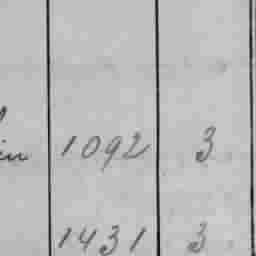 in 1092 3
1431 3